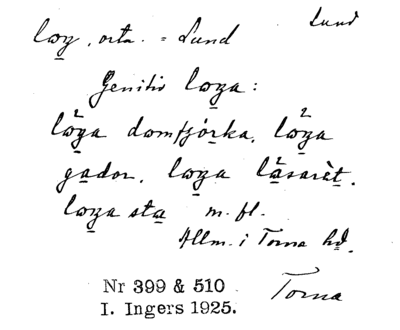 Lund
loŋ, ortn. = Lund
Genitiv loŋa:
lòŋa domfjórka, lòŋa
gador, loŋa lasarèt,
loŋa sta m. fl.
Allm. i Torna hd.
Nr 399 & 510
I. Ingers 1925.
Torna